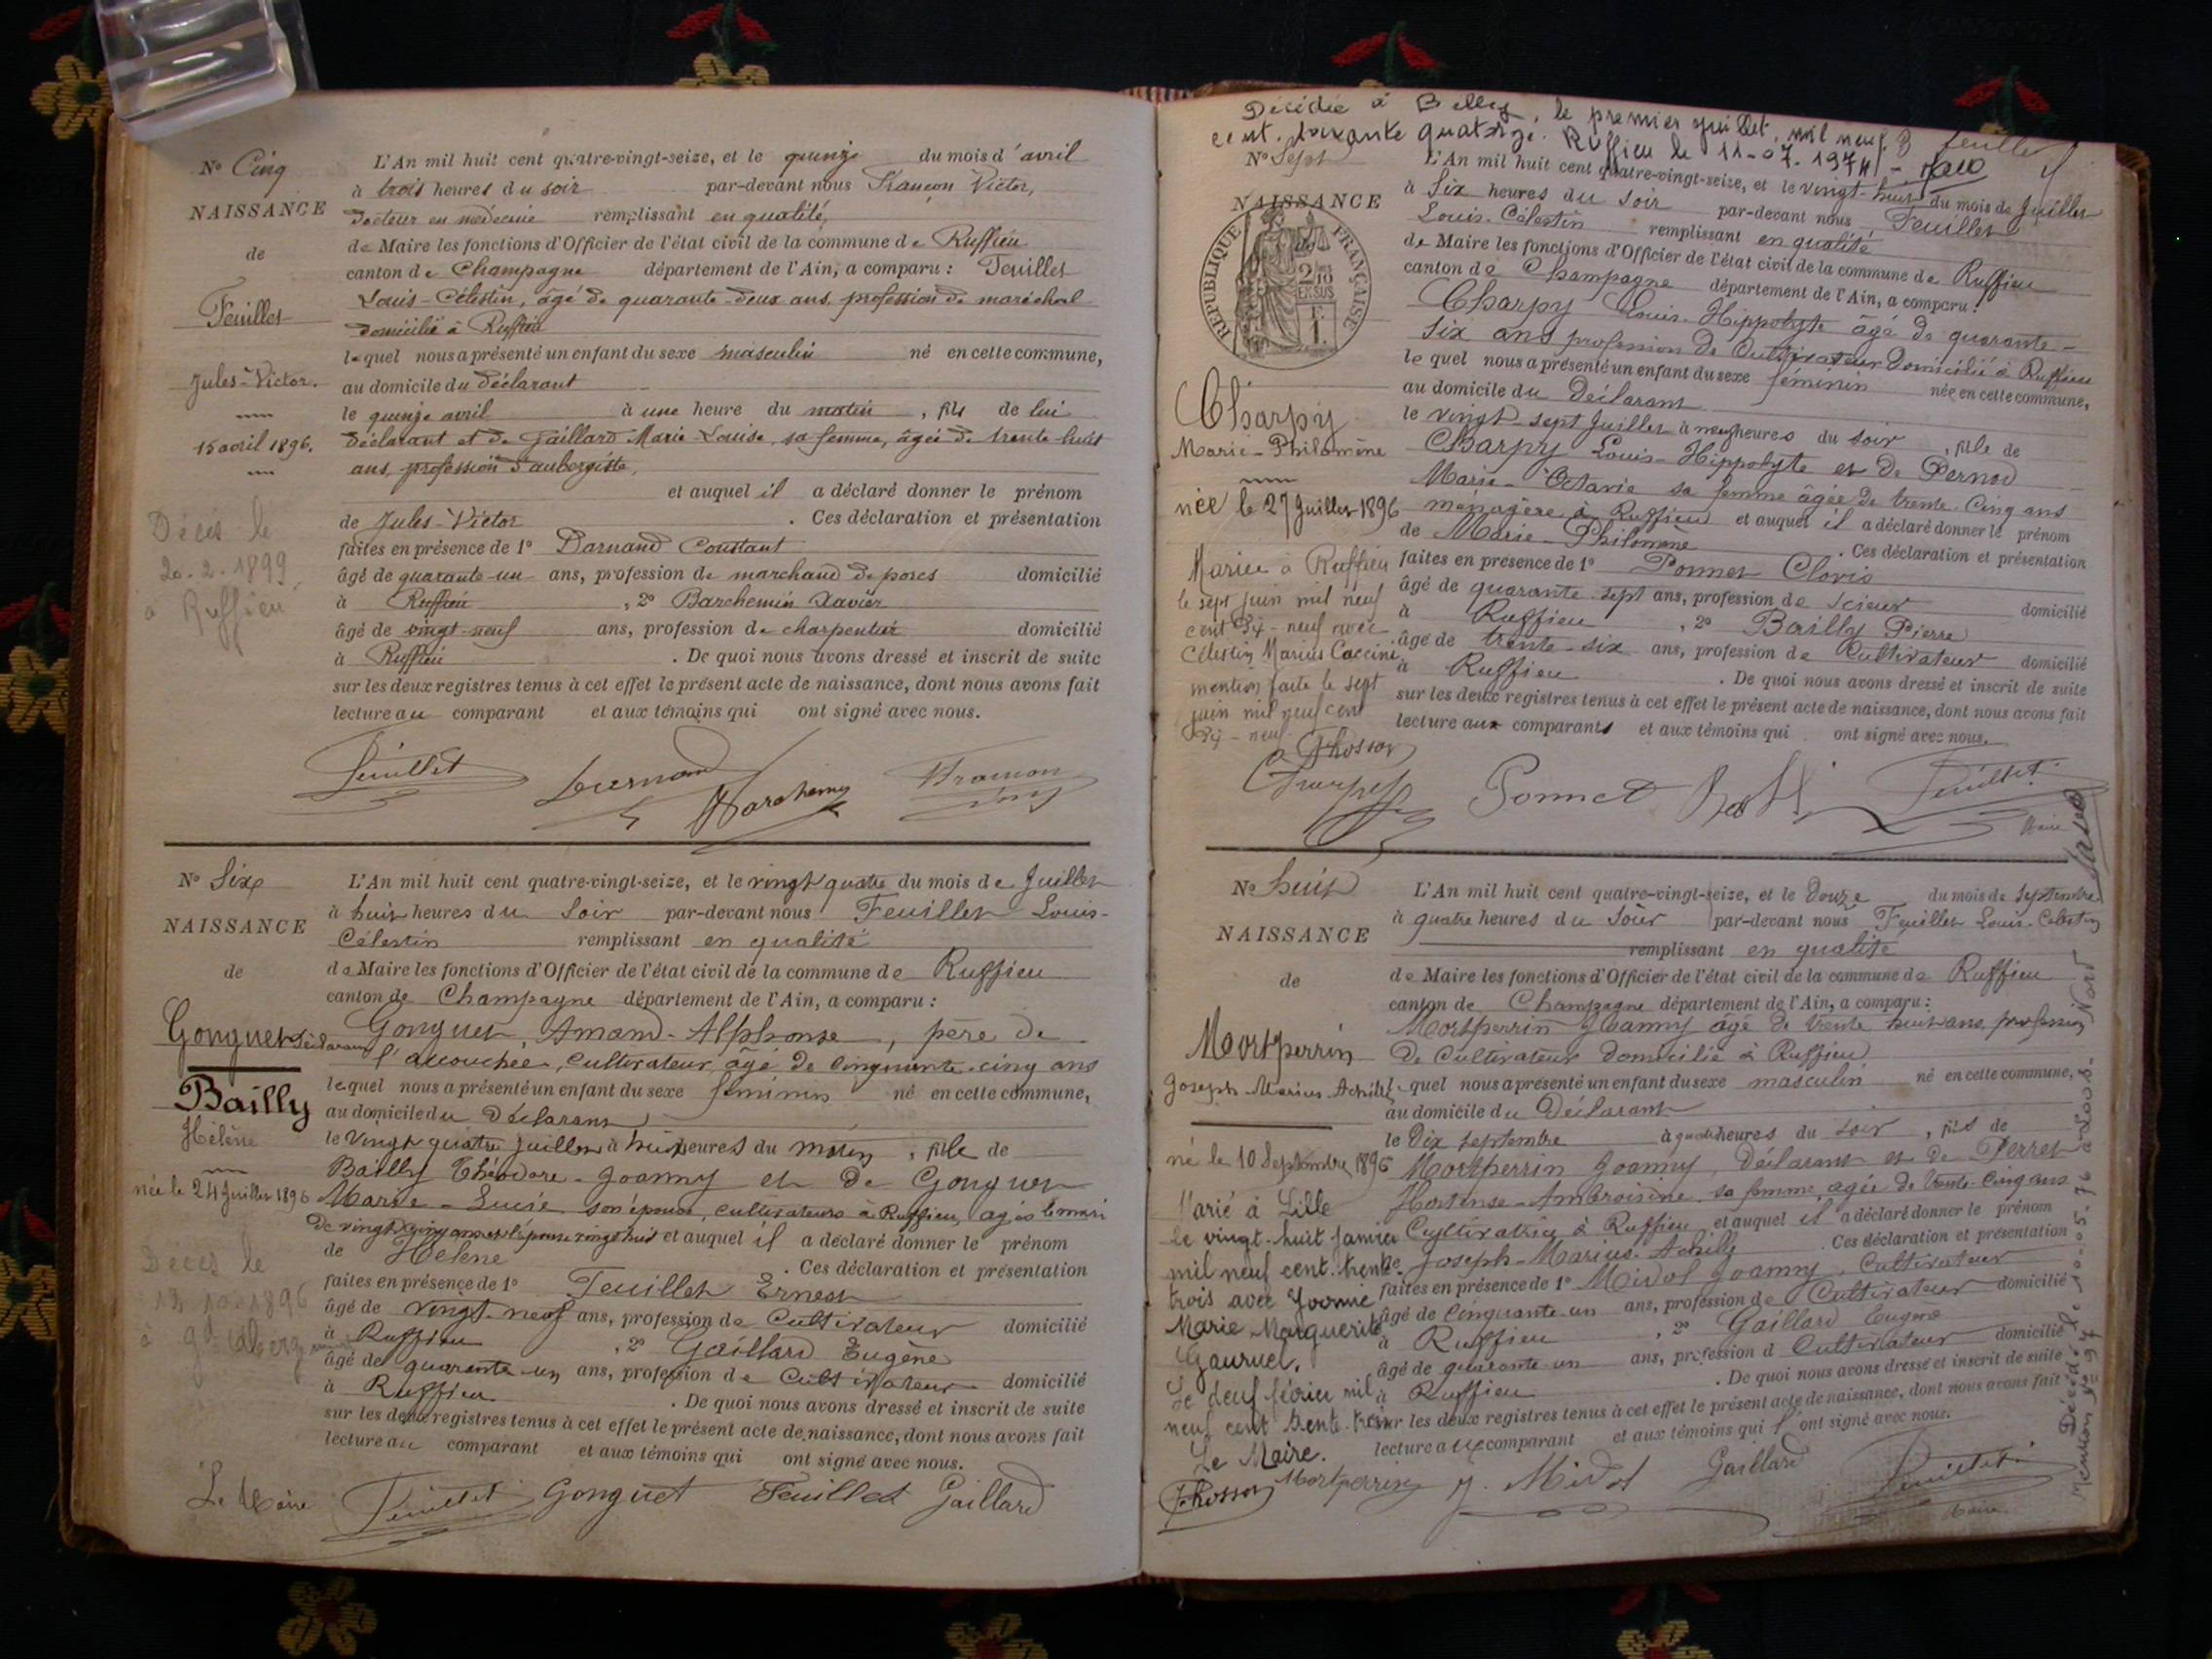 No Cinq
NAISSANCE
de
Feuillet
Jules-Victor.
15 avril 1896.
Décès le
20.2.1899
à Ruffieu
L'An mil huit cent quatre-vingt-seize, et le quinze du mois d'avril
à trois heures du soir par-devant nous Françon Victor,
docteur en médecine remplissant en qualité,
de Maire les fonctions d'Officier de l'état civil de la commune de Ruffieu
canton de Champagne département de l'Ain, a comparu : Feuillet
Louis-Célestin, âgé de quarante-deux ans, profession de maréchal
domicilié à Ruffieu
lequel nous a présenté un enfant du sexe masculin né en cette commune,
au domicile du déclarant
le quinze avril à une heure du matin, fils de lui
déclarant et de Gaillard Marie-Louise, sa femme, âgée de trente-huit
ans, profession d'aubergiste,
et auquel il a déclaré donner le prénom
de Jules-Victor. Ces déclaration et présentation
faites en présence de 1° Darnand Constant
âgé de quarante-un ans, profession de marchand de porcs domicilié
à Ruffieu, 2° Barchemin Xavier
âgé de vingt-neuf ans, profession de charpentier domicilié
à Ruffieu. De quoi nous avons dressé et inscrit de suite
sur les deux registres tenus à cet effet le présent acte de naissance, dont nous avons fait
lecture au comparant et aux témoins qui ont signé avec nous.
Feuillet Barchemin Françon
No Six
NAISSANCE
de
Gonguet
Bailly
Hélène
née le 24 Juillet 1896
Décès le
12 10 1896
à
L'An mil huit cent quatre-vingt-seize, et le vingt quatre du mois de Juillet
à huit heures du soir par-devant nous Feuillet Louis-
Célestin remplissant en qualité
de Maire les fonctions d'Officier de l'état civil de la commune de Ruffieu
canton de Champagne département de l'Ain, a comparu :
déclarant Gonguet, Amand-Alphonse, père de
l'accouchée, Cultivateur, âgé de Cinquante-cinq ans
lequel nous a présenté un enfant du sexe féminin né en cette commune,
au domicile du déclarant
le vingt quatre Juillet à huit heures du matin, fille de
Bailly Théodore-Joanny et de Gonguet
Marie-Lucie son épouse, cultivateurs à Ruffieu, âgés le mari
de vingt cinq ans et l'épouse vingt huit et auquel il a déclaré donner le prénom
de Hélène. Ces déclaration et présentation
faites en présence de 1° Feuillet Ernest
âgé de vingt-neuf ans, profession de Cultivateur domicilié
à Ruffieu, 2° Gaillard Eugène
âgé de quarante-un ans, profession de Cultivateur domicilié
à Ruffieu. De quoi nous avons dressé et inscrit de suite
sur les deux registres tenus à cet effet le présent acte de naissance, dont nous avons fait
lecture au comparant et aux témoins qui ont signé avec nous.
Le Maire Feuillet Gonguet Feuillet Gaillard
Décédée à Belley, le premier juillet, mil neuf
cent soixante quatorze. Ruffieu le 11-07-1974
3 feuillet
No Sept
NAISSANCE
RÉPUBLIQUE FRANÇAISE
Charpy
Marie-Philomène
née le 27 Juillet 1896
Mariée à Ruffieu
le sept juin mil neuf
cent dix-neuf avec
Célestin Marius Caccini
mention faite le sept
juin mil neuf cent
dix-neuf
L'An mil huit cent quatre-vingt-seize, et le vingt-huit du mois de Juillet
à Six heures du Soir par-devant nous Feuillet
Louis-Célestin remplissant en qualité
de Maire les fonctions d'Officier de l'état civil de la commune de Ruffieu
canton de Champagne département de l'Ain, a comparu :
Charpy Louis-Hippolyte âgé de quarante-
six ans profession de Cultivateur domicilié à Ruffieu
lequel nous a présenté un enfant du sexe féminin née en cette commune,
au domicile du Déclarant
le vingt-sept Juillet à neuf heures du soir, fille de
Charpy Louis-Hippolyte et de Pernod
Marie-Octavie sa femme âgée de trente-Cinq ans
ménagère à Ruffieu et auquel il a déclaré donner le prénom
de Marie-Philomène. Ces déclaration et présentation
faites en présence de 1° Ponnet Clovis
âgé de quarante-sept ans, profession de scieur domicilié
à Ruffieu, 2° Bailly Pierre
âgé de trente-six ans, profession de Cultivateur domicilié
à Ruffieu. De quoi nous avons dressé et inscrit de suite
sur les deux registres tenus à cet effet le présent acte de naissance, dont nous avons fait
lecture aux comparants et aux témoins qui ont signé avec nous.
Charpy Ponnet Feuillet
Maire
No huit
NAISSANCE
de
Mortperrin
Joseph-Marius-Achille
né le 10 Septembre 1896
Marié à Lille
le vingt-huit janvier
mil neuf cent trente
trois avec Yvonne
Marie Marguerite
Gauruel.
Le neuf février mil
neuf cent trente-trois
Le Maire.
L'An mil huit cent quatre-vingt-seize, et le Douze du mois de Septembre
à quatre heures du Soir par-devant nous Feuillet Louis-Célestin
remplissant en qualité
de Maire les fonctions d'Officier de l'état civil de la commune de Ruffieu
canton de Champagne département de l'Ain, a comparu :
Mortperrin Joanny âgé de trente huit ans, profession
de Cultivateur domicilié à Ruffieu
lequel nous a présenté un enfant du sexe masculin né en cette commune,
au domicile du Déclarant
le Dix septembre à quatre heures du soir, fils de
Mortperrin Joanny, Déclarant et de Perret
Hortense-Ambroisine sa femme, âgée de trente-Cinq ans
Cultivatrice à Ruffieu, et auquel il a déclaré donner le prénom
de Joseph-Marius-Achille. Ces déclaration et présentation
faites en présence de 1° Midol Joanny, Cultivateur
âgé de Cinquante-un ans, profession de Cultivateur domicilié
à Ruffieu, 2° Gaillard Eugène
âgé de quarante-un ans, profession d Cultivateur domicilié
à Ruffieu. De quoi nous avons dressé et inscrit de suite
sur les deux registres tenus à cet effet le présent acte de naissance, dont nous avons fait
lecture au comparant et aux témoins qui ont signé avec nous.
Mortperrin J. Midol Gaillard Feuillet
Maire